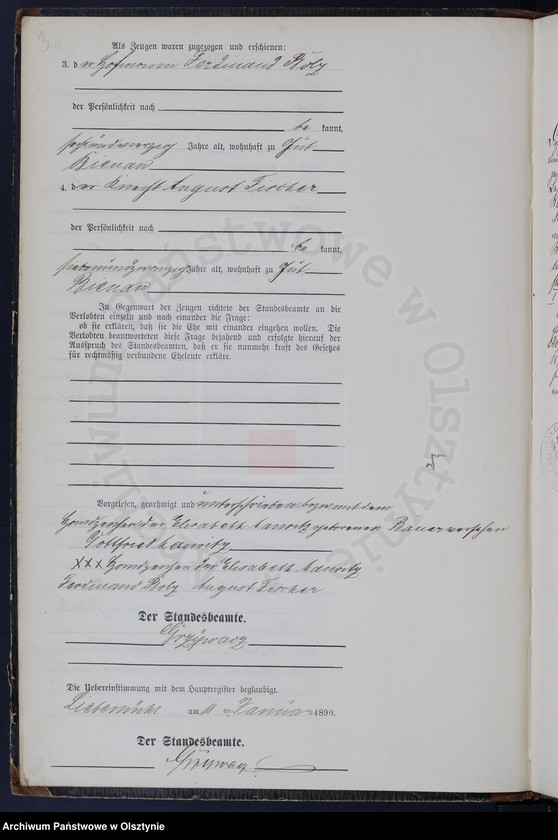 3
Als Zeugen waren zugezogen und erschienen:
3. der Hofmann Ferdinand Rolz
der Persönlichkeit nach
be kannt,
sechsundvierzig Jahre alt, wohnhaft zu Gut
Bienau
4. der Knecht August Fischer
der Persönlichkeit nach
be kannt,
Jahre alt, wohnhaft zu Gut
Bienau
In Gegenwart der Zeugen richtete der Standesbeamte an die
Verlobten einzeln und nach einander die Frage:
ob sie erklären, daß sie die Ehe mit einander eingehen wollen. Die
Verlobten beantworteten diese Frage bejahend und erfolgte hierauf der
Ausspruch des Standesbeamten, daß er sie nunmehr kraft des Gesetzes
für rechtmäßig verbundene Eheleute erkläre.
Vorgelesen, genehmigt und unterschrieben bezw. mit dem
Handzeichen der Elisabeth geborenen Bauer versehen
Gottfried
XXX Handzeichen der Elisabeth
Ferdinand Rolz August Fischer
Der Standesbeamte.
Grzywacz
Die Uebereinstimmung mit dem Hauptregister beglaubigt.
Liebemühl am 11 ten Januar 1890.
Der Standesbeamte.
Grzywacz
Archiwum Państwowe w Olsztynie
Archiwum Państwowe w Olsztynie